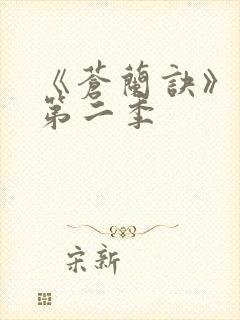 《蒼蘭訣》
第二季
宋新